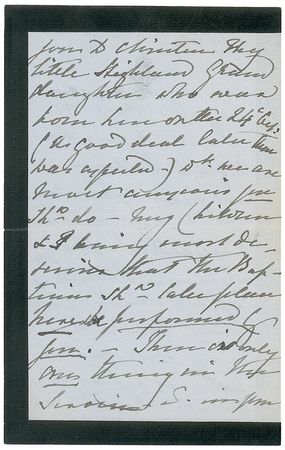 you to christen my
little Highland Grand
daughter who was
born here on the 24th Oct:
(a good deal later than
was expected -) wh. we are
most anxious you
shd do - my Children
& I being most de-
sirous that the Bap-
tism shd take place
here & performed by
you. - There is only
one thing in the
Service